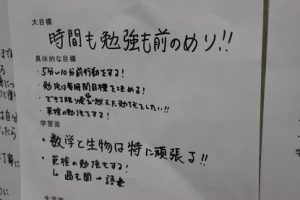 大目標
時間も勉強も前のめり!!
具体的な目標
・5分〜10分前行動をする!
・勉強は毎時間目標を決める!
・できる限り先を越えた勉強をしたい!!
・英検の勉強をする!
学習面
・数学と生物は特に頑張る!!
・英検の勉強をする!
↳過去問→語彙
生活面